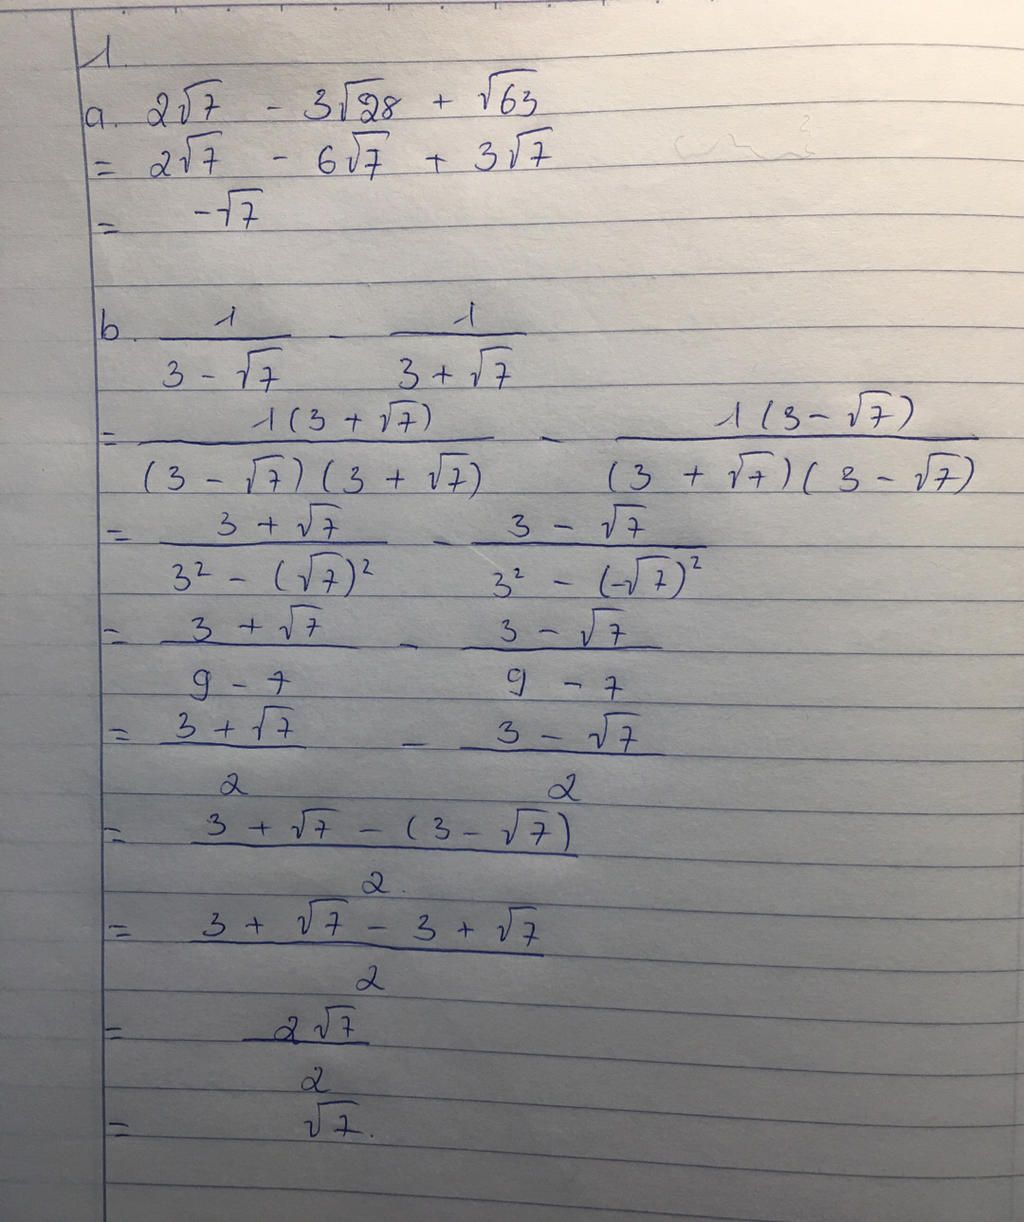 1.
a. 2√7 - 3√28 + √63
= 2√7 - 6√7 + 3√7
= -√7
b. 1/(3 - √7) - 1/(3 + √7)
= 1(3 + √7)/((3 - √7)(3 + √7)) - 1(3 - √7)/((3 + √7)(3 - √7))
= (3 + √7)/(3² - (√7)²) - (3 - √7)/(3² - (-√7)²)
= (3 + √7)/(9 - 7) - (3 - √7)/(9 - 7)
= (3 + √7)/2 - (3 - √7)/2
= (3 + √7 - (3 - √7))/2.
= (3 + √7 - 3 + √7)/2
= 2√7/2
= √7.